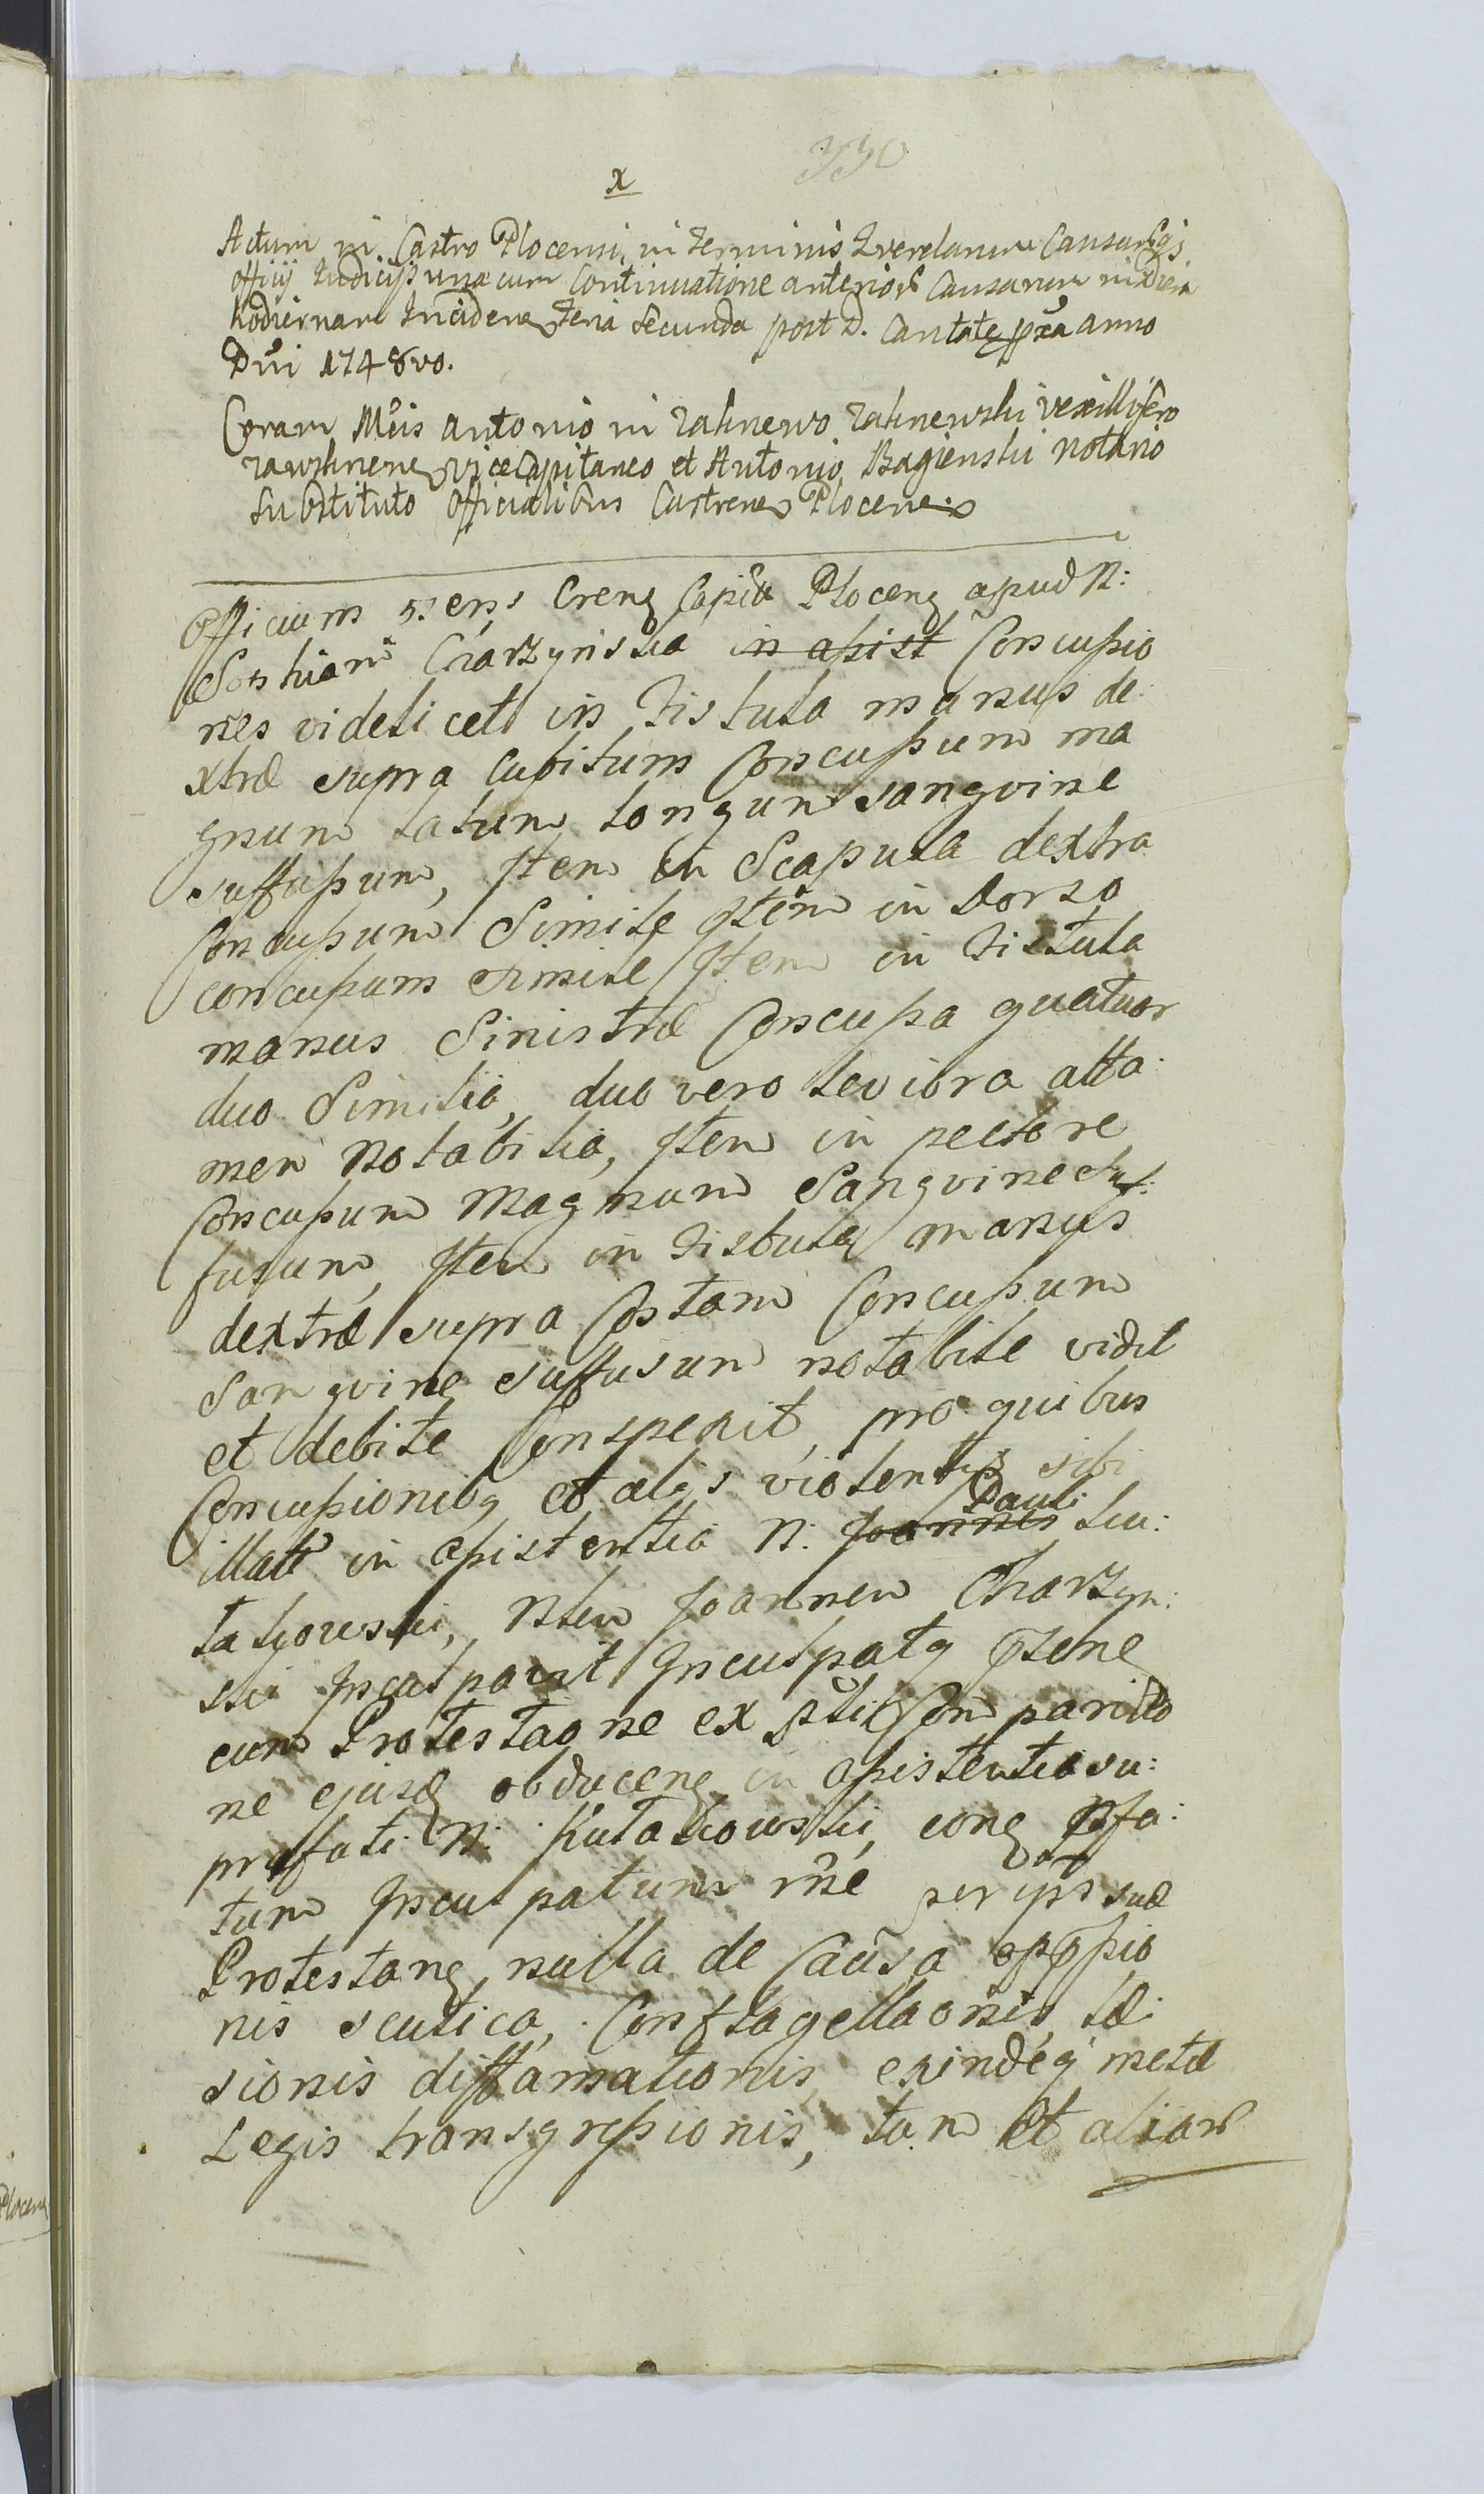 330
x
Actum in Castro Plocensi, in Terminis Querelarum Causarūqs
officij Judicijs una cum Continuatione anterior Causarum in Diem
hodiernam Inciden Feria Secunda post D. Cantate pxa anno
Dni 1748vo.
Coram Mcis Antonio in Zalinewo Zalinewski vexillifero
rawskinen viceCapitaneo et Antonio Bagienski Notario
Substituto Officialibus Castren Plocen
Officium Cren Capitu Plocen apud N:
Charzynska in assist Concussio
nes videlicet in Fistula manus de
xtræ supra Cubitum Concussum ma
gnum latum longum sangvine
suffussum, Item in Scapula dextra
Concussum Simile Item in Dorso
concussum simile Item in Fistula
manus Sinistræ Concussa quatuor
duo Similia, duo vero leviora atta:
men Notabilia, Item in pectore
Concussum Magnum Sangvine Suf:
fusum, Item in Fistula manus
dextræ supra Costam Concussum
Sangvine suffusum notabile vidit
et debite Conspexit, pro quibus
Concussionibq et alijs violentijs sibi
illatis in assistentia N: Joannis Pauli Lu:
tatkowski, Nlem Joannem Charzyn:
ski Inculpavit Inculpatq
cum Protestaone ex Con pariõõ
ne ejusd obducen in assistentia su:
prafati N: Rutatkowski, con Pfa:
tum Inculpatum rne per ipsu suæ
Protestans, nulla de Causa
nis scutica, Conflagellaonis, Læ:
sionis diffamationis, exindeq metæ
Legis transgressionis, tam et aliar
Plocen